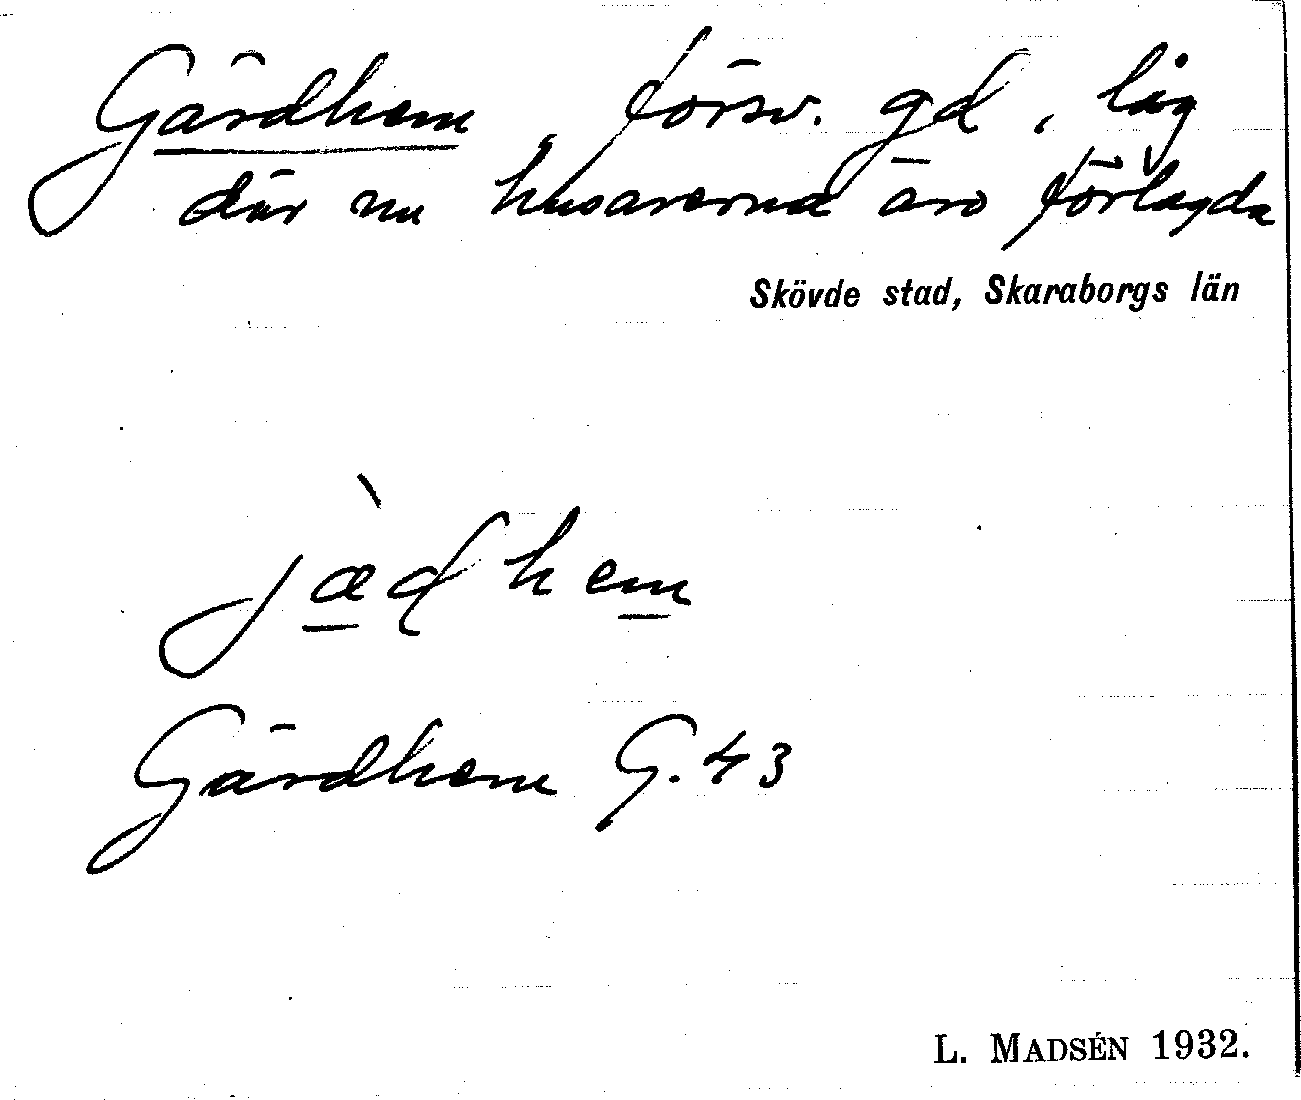 Gärdhem, försv. gd, låg
där nu husarerna äro förlagda
Skövde stad, Skaraborgs län
jæ̀dhem
Gärdhem G. 43
L. MADSÉN 1932.